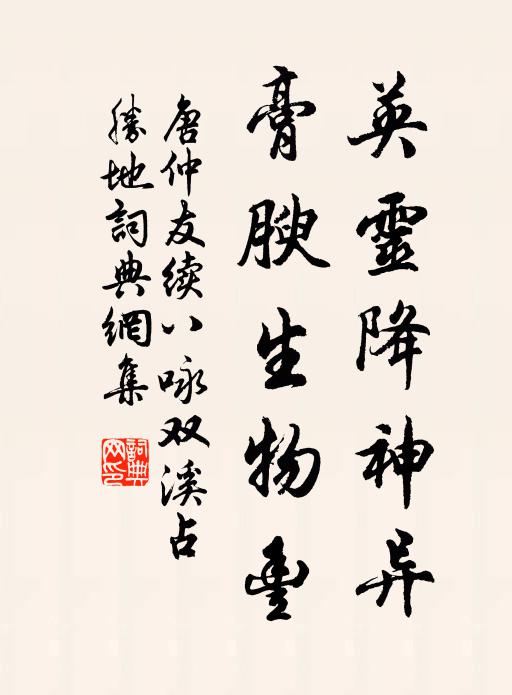 英靈降神异
膏腴生物豊
唐仲友续八咏双溪占
勝地詞典網集
詞典網印